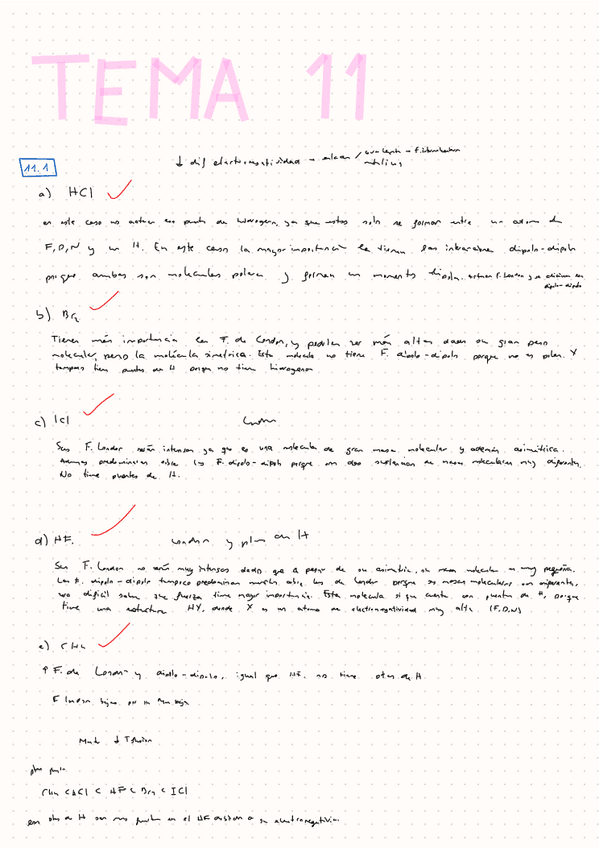 TEMA 11
11.1
↓ dif electronegatividad
a) HCl
en este caso no actúan los puentes de hidrógeno, ya que estos solo se forman entre un átomo de
F, O, N y un H. En este caso la mayor importancia la tienen las interacciones dipolo-dipolo
porque ambas son moléculas polares y forman un momento dipolar.
dipolo-dipolo
b) Br₂
Tienen más importancia las F. de London, y podrían ser más altas dado su gran peso
molecular, pero la molécula simétrica. Esta molécula no tiene F. dipolo-dipolo porque no es polar. Y
tampoco tiene puentes de H porque no tiene hidrógeno
c) ICl London
Sus F. London serán intensas ya que es una molécula de gran masa molecular y además asimétrica.
predominan sobre las F. dipolo-dipolo porque son dos sustancias de masas moleculares muy diferentes.
No tiene puentes de H.
d) HF. London y H
Sus F. London no serán muy intensas dado que a pesar de su asimetría, su masa molecular es muy pequeña.
Las F. dipolo-dipolo tampoco predominan mucho sobre las de London porque sus masas moleculares son diferentes,
es difícil saber que fuerza tiene mayor importancia. Esta molécula si que cuenta con puentes de H, porque
tiene una estructura HX, donde X es un átomo de electronegatividad muy alta (F, O, N)
e) CH₄
↑ F. de London y dipolo-dipolo, igual que HF. no tiene ptes de H.
F London bajas
↓ T fusión
CH₄ < HCl < HF < Br₂ < ICl
en el HF su electronegatividad